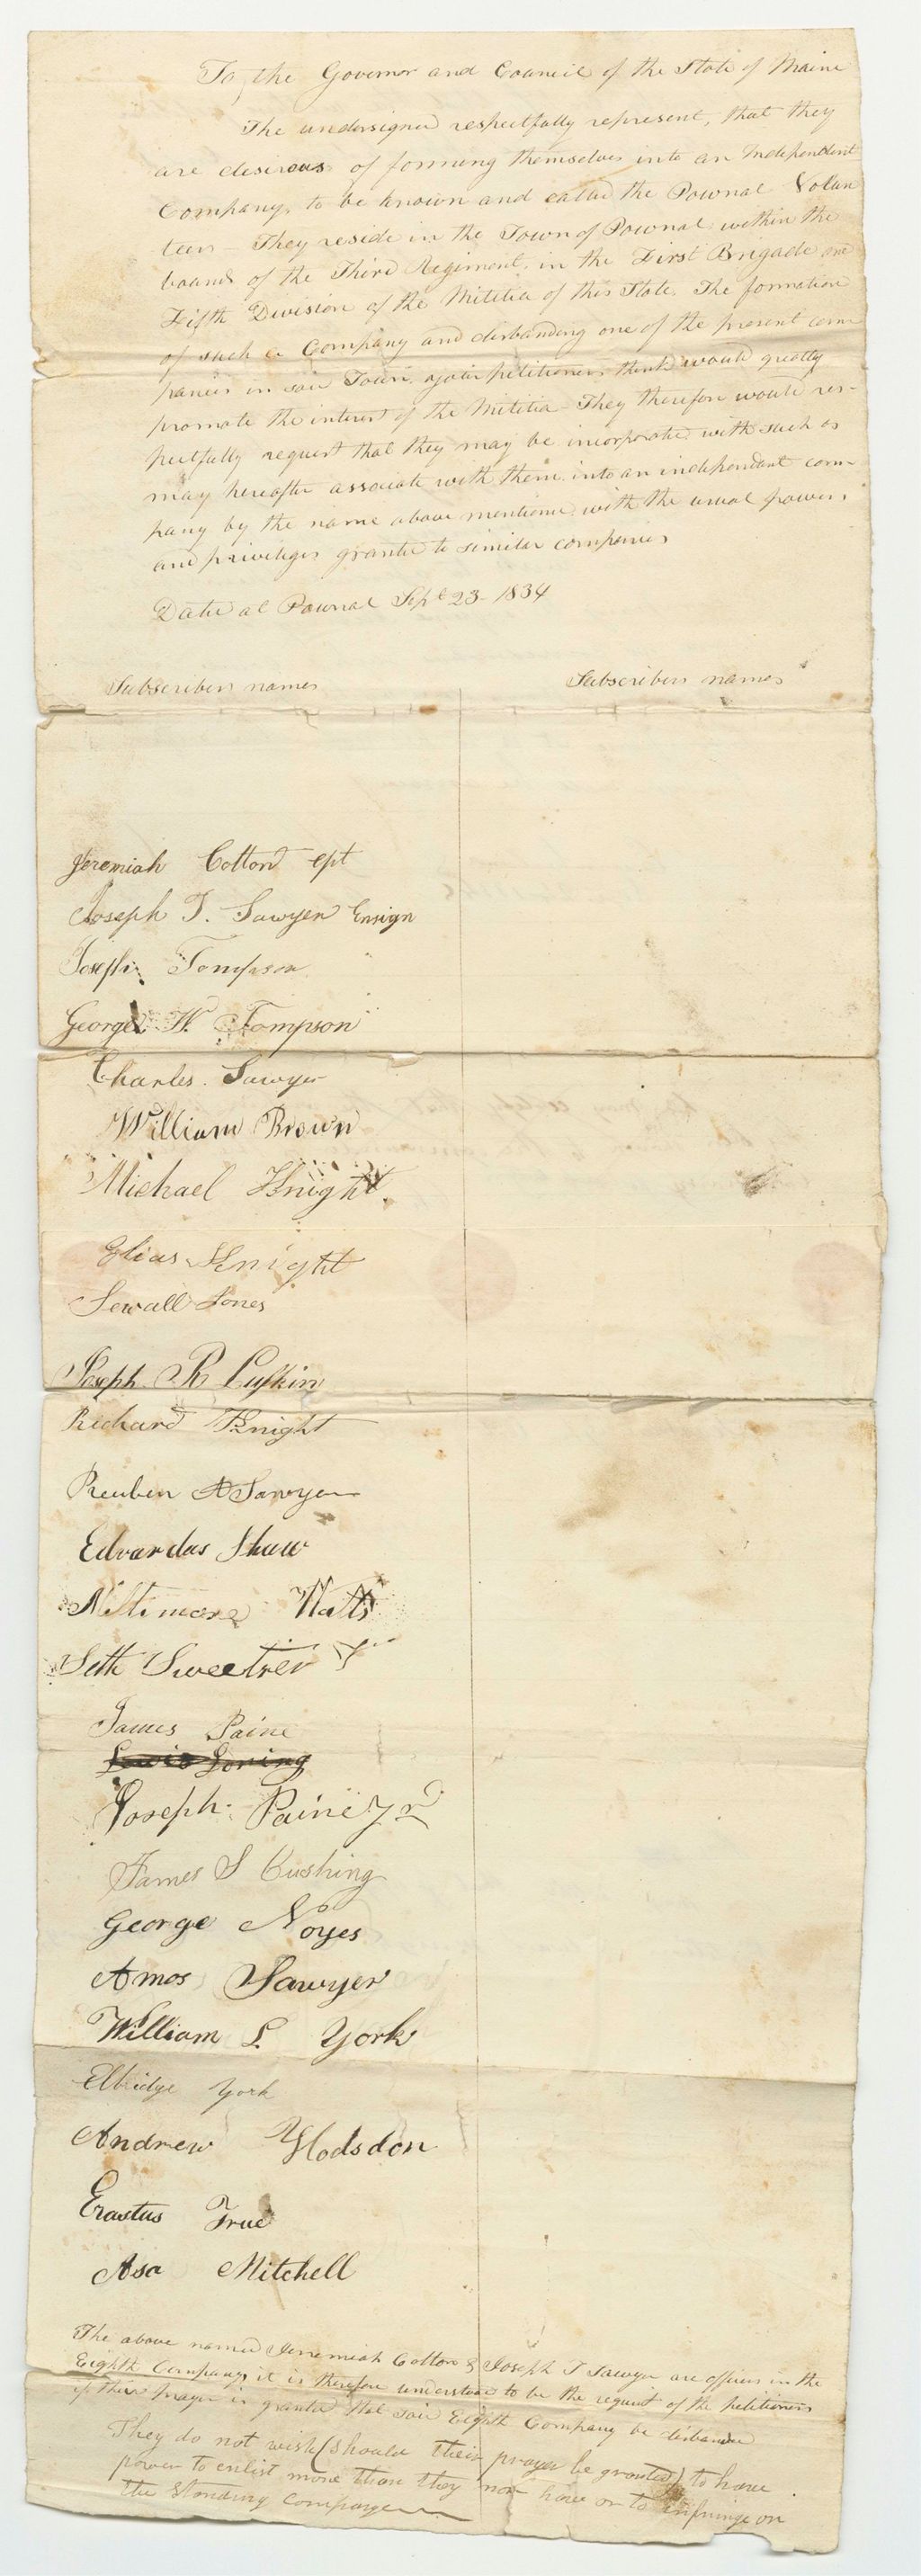 To the Governor and Council of the State of Maine
The undersigned respectfully represent, that they
are desirous of forming themselves into an Independent
Company, to be known and called the Pownal Volun
teers - They reside in the Town of Pownal within the
bounds of the Third Regiment, in the First Brigade and
Fifth Division of the Militia of this State. The formation
of such a Company and disbanding one of the present com-
panies in said Town, your petitioners think would greatly
promote the interest of the Militia - They therefore would res-
pectfully request that they may be incorporated with such as
may hereafter associate with them into an independent com-
pany by the name above mentioned with the usual powers,
and privileges granted to similar companies
Dated at Pownal Sept 23 - 1834
Subscribers names Subscribers names
Jeremiah Cotton cpt
Joseph T. Sawyer Ensign
Joseph Tompson
George W. Tompson
Charles. Sawyer
William Brown
Michael Knight.
Elias Knight
Sewall Jones
Joseph R Lufkin
Richard Knight
Reuben A Sawyer
Edvardas Shaw
Miltimore Watts
Seth Sweetser Jr
James Paine
Lewis Loring
Joseph Paine Jr
James S Cushing
George Noyes
Amos Sawyer
William L. York
Elbridge York
Andrew Hodsdon
Erastus True
Asa Mitchell
The above named Jeremiah Cotton & Joseph T Sawyer are officers in the
Eighth Company, it is therefore understood to be the request of the petitioners
if their prayer is granted that said Eighth Company be disbanded
They do not wish (should their prayer be granted) to have
power to enlist more than they now have or to infringe on
the Standing Companys